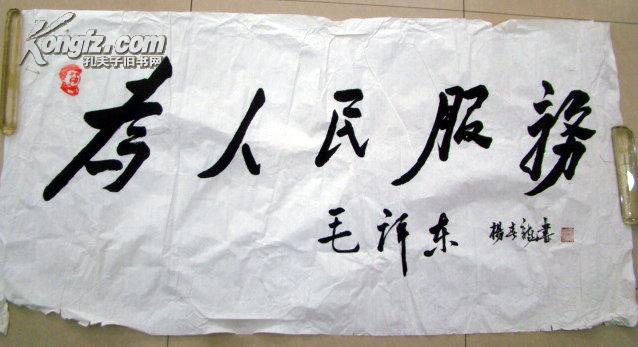 Kongfz.com
孔夫子旧书网
為人民服務
毛泽东
楊春龍書